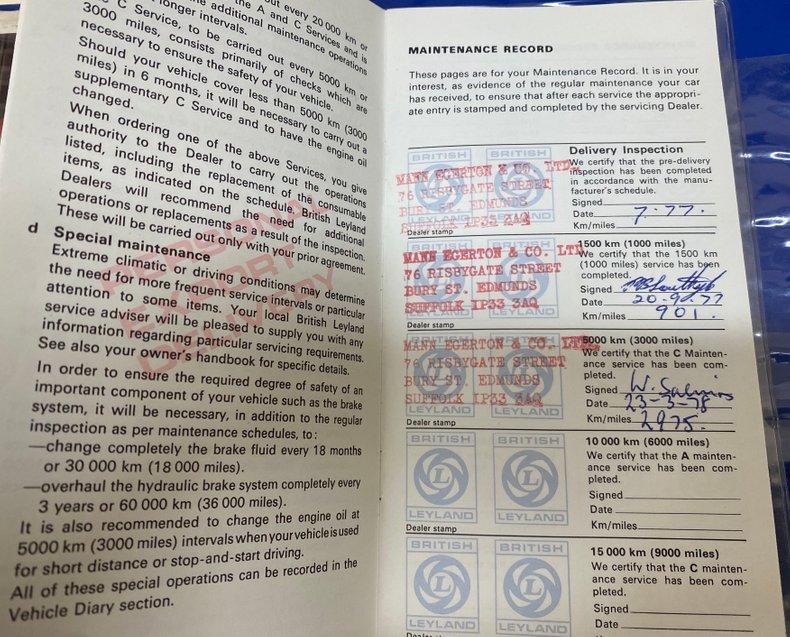 out every 20 000 km or
longer intervals. the A and C Services and is
additional maintenance operations
C Service, to be carried out every 5000 km or
3000 miles, consists primarily of checks which are
necessary to ensure the safety of your vehicle.
Should your vehicle cover less than 5000 km (3000
miles) in 6 months, it will be necessary to carry out a
supplementary C Service and to have the engine oil
changed.
When ordering one of the above Services, you give
authority to the Dealer to carry out the operations
listed, including the replacement of the consumable
items, as indicated on the schedule. British Leyland
Dealers will recommend the need for additional
operations or replacements as a result of the inspection.
These will be carried out only with your prior agreement.
d Special maintenance
Extreme climatic or driving conditions may determine
the need for more frequent service intervals or particular
attention to some items. Your local British Leyland
service adviser will be pleased to supply you with any
information regarding particular servicing requirements.
See also your owner's handbook for specific details.
In order to ensure the required degree of safety of an
important component of your vehicle such as the brake
system, it will be necessary, in addition to the regular
inspection as per maintenance schedules, to:
—change completely the brake fluid every 18 months
or 30 000 km (18 000 miles).
—overhaul the hydraulic brake system completely every
3 years or 60 000 km (36 000 miles).
It is also recommended to change the engine oil at
5000 km (3000 miles) intervals when your vehicle is used
for short distance or stop-and-start driving.
All of these special operations can be recorded in the
Vehicle Diary section.
PERSONAL
EXPORT
DELIVERY
MAINTENANCE RECORD
These pages are for your Maintenance Record. It is in your
interest, as evidence of the regular maintenance your car
has received, to ensure that after each service the appropri-
ate entry is stamped and completed by the servicing Dealer.
BRITISH BRITISH
LEYLAND LEYLAND
MANN EGERTON & CO. LTD.
76 RISBYGATE STREET
BURY ST. EDMUNDS
SUFFOLK IP33 3AQ
Dealer stamp
Delivery Inspection
We certify that the pre-delivery
inspection has been completed
in accordance with the manu-
facturer's schedule.
Signed
Date 7.77.
MANN EGERTON & CO. LTD
76 RISBYGATE STREET
BURY ST. EDMUNDS
SUFFOLK IP33 3AQ
Dealer stamp
1500 km (1000 miles)
We certify that the 1500 km
(1000 miles) service has been
completed.
Signed
Date
Km/miles 901.
MANN EGERTON & CO. LTD.
76 RISBYGATE STREET
BURY ST. EDMUNDS
SUFFOLK IP33 3AQ
LEYLAND LEYLAND
Dealer stamp
5000 km (3000 miles)
We certify that the C Mainten-
ance service has been com-
pleted.
Signed W.
Date 23-3-78
Km/miles 2975.
BRITISH BRITISH
L L
LEYLAND LEYLAND
Dealer stamp
10 000 km (6000 miles)
We certify that the A mainten-
ance service has been com-
pleted.
Signed
Date
Km/miles
BRITISH BRITISH
L L
LEYLAND LEYLAND
15 000 km (9000 miles)
We certify that the C mainten-
ance service has been com-
pleted.
Signed
Date
Km/miles